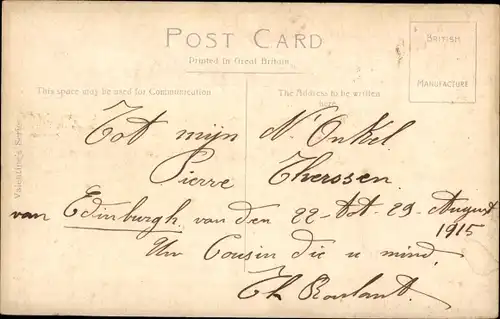 POST CARD
Printed in Great Britain
BRITISH
MANUFACTURE
This space may be used for Communication
The Address to be written
here
Valentine's Series
Tot mijn N. Onkel
Pierre Therssen
van Edinburgh van den 22 tot 29 August
1915
Un Cousin die u mind.
Th